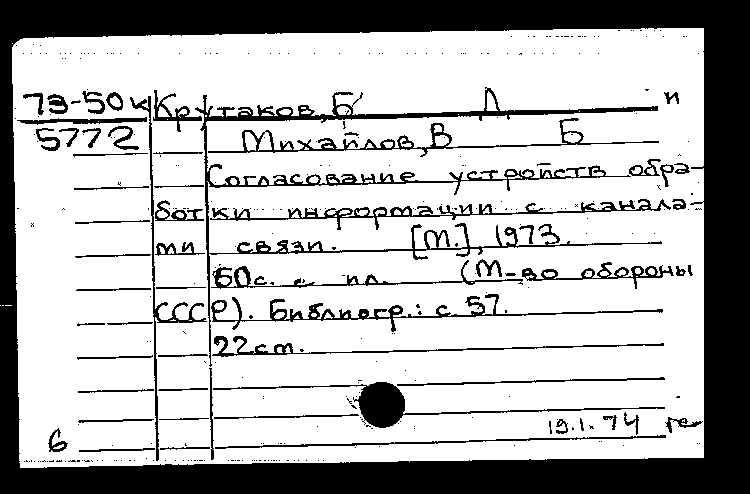 73-50к Крутаков, Б Л и
5772 Михайлов, В Б
Согласование устройств обра-
ботки информации с канала-
ми связи. [М.], 1973.
60с. с ил. (М-во обороны
СССР). Библиогр.: с. 57.
22см.
19.1.74
6